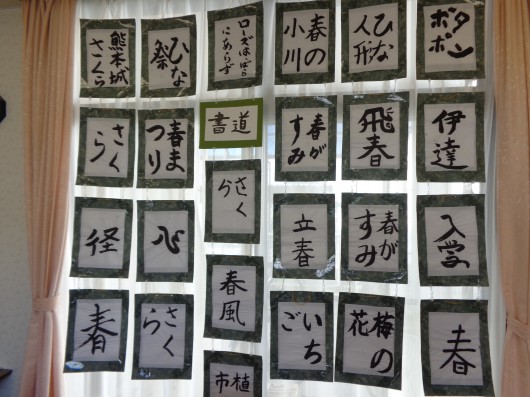 タン
ポポ
伊達
入学
春
ひな
人形
飛春
春が
すみ
梅の
花
春の
小川
春が
すみ
立春
いち
ご
ローズはばら
にあらず
書道
さく
ら
春風
植
市
ひな
祭
春ま
つり
心
さく
ら
熊本城
さくら
さく
ら
径
春